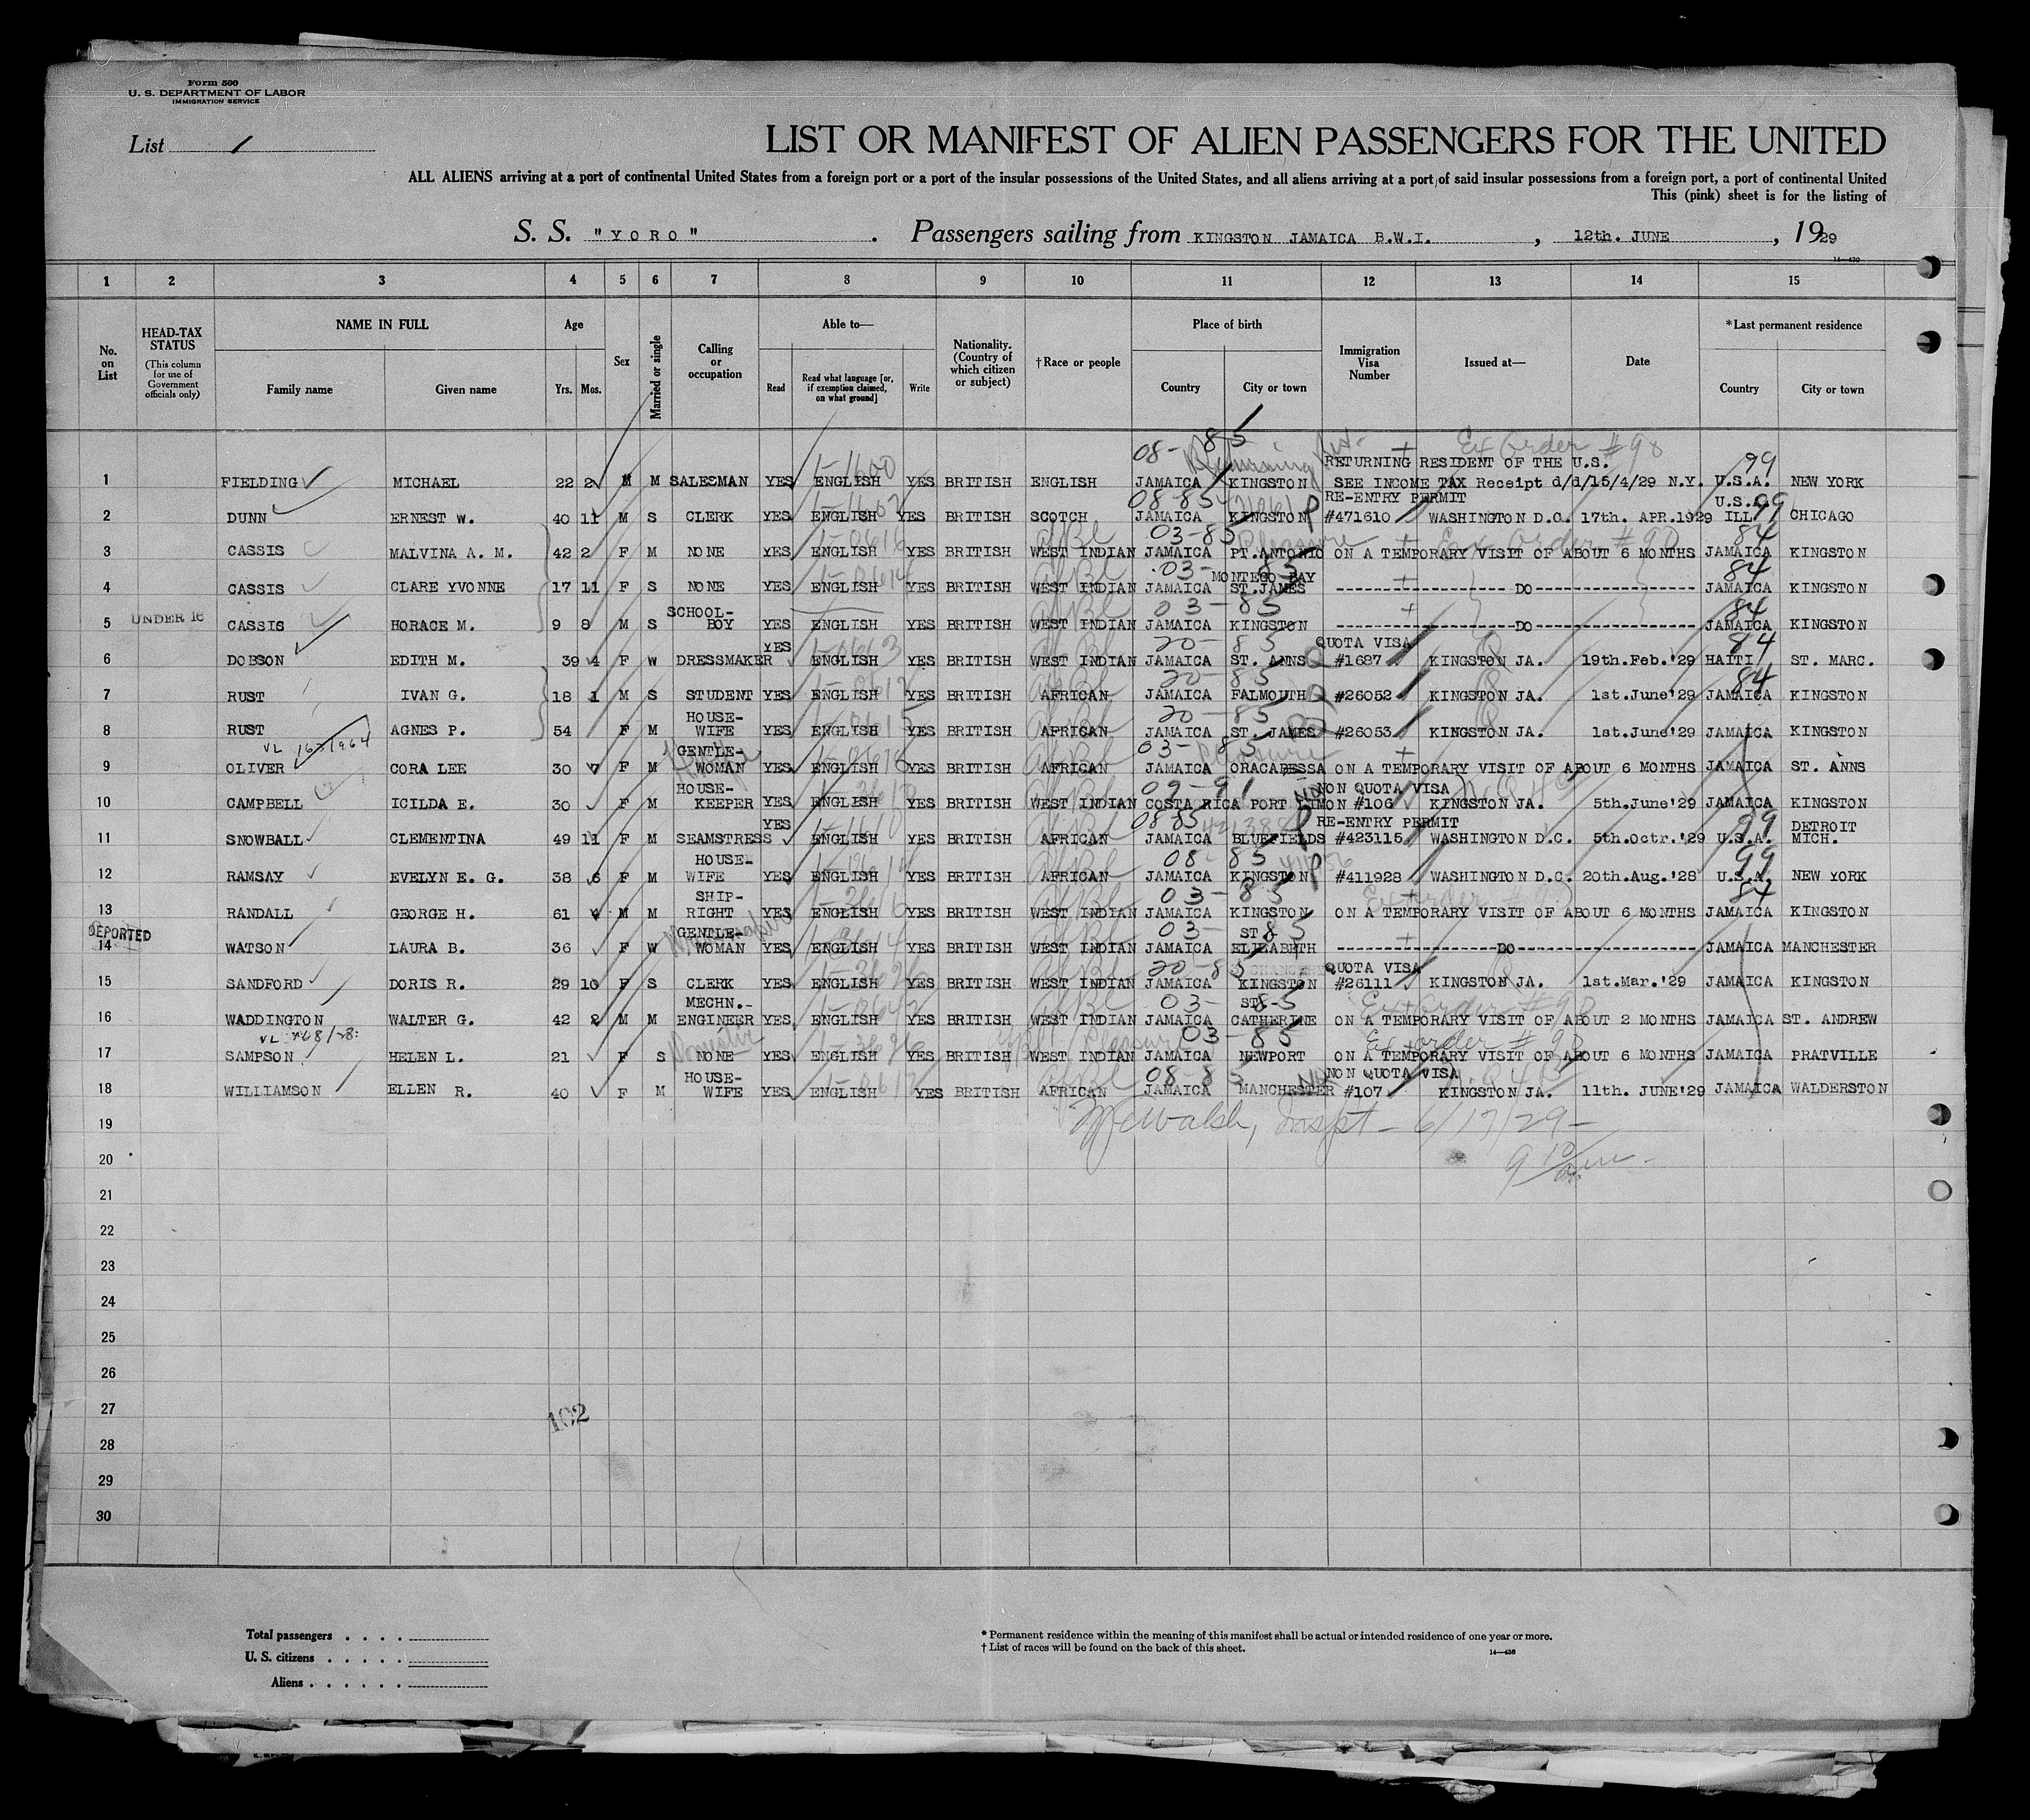 Form 500
U. S. DEPARTMENT OF LABOR
IMMIGRATION SERVICE
List 1
LIST OR MANIFEST OF ALIEN PASSENGERS FOR THE UNITED
ALL ALIENS arriving at a port of continental United States from a foreign port or a port of the insular possessions of the United States, and all aliens arriving at a port of said insular possessions from a foreign port, a port of continental United
This (pink) sheet is for the listing of
S. S. "YORO". Passengers sailing from KINGSTON JAMAICA B.W.I., 12th. JUNE, 1929
1 2 3 4 5 6 7 8 9 10 11 12 13 14 15
No. on List
HEAD-TAX STATUS (This column for use of Government officials only)
NAME IN FULL Family name Given name
Age Yrs. Mos.
Sex
Married or single
Calling or occupation
Able to— Read Read what language [or, if exemption claimed, on what ground] Write
Nationality. (Country of which citizen or subject)
†Race or people
Place of birth Country City or town
Immigration Visa Number
Issued at—
Date
*Last permanent residence Country City or town
08- 85 Ex Order #98
RETURNING RESIDENT OF THE U.S. 99
1 FIELDING MICHAEL 22 2 M M SALESMAN YES ENGLISH YES BRITISH ENGLISH JAMAICA KINGSTON SEE INCOME TAX Receipt d/d/15/4/29 N.Y. U.S.A. NEW YORK
08-85 RE-ENTRY PERMIT U.S. 99
2 DUNN ERNEST W. 40 11 M S CLERK YES ENGLISH YES BRITISH SCOTCH JAMAICA KINGSTON P #471610 WASHINGTON D.C. 17th. APR.1929 ILL CHICAGO
03-85 Pleasure Ex Order #98 84
3 CASSIS MALVINA A. M. 42 2 F M NONE YES ENGLISH YES BRITISH WEST INDIAN JAMAICA PT.ANTONIO ON A TEMPORARY VISIT OF ABOUT 6 MONTHS JAMAICA KINGSTON
03- 85 MONTEGO BAY 84
4 CASSIS CLARE YVONNE 17 11 F S NONE YES ENGLISH YES BRITISH WEST INDIAN JAMAICA ST.JAMES DO JAMAICA KINGSTON
SCHOOL- 03-85 84
5 UNDER 16 CASSIS HORACE M. 9 8 M S BOY YES ENGLISH YES BRITISH WEST INDIAN JAMAICA KINGSTON DO JAMAICA KINGSTON
YES 20-85 QUOTA VISA 84
6 DOBSON EDITH M. 39 4 F W DRESSMAKER ENGLISH YES BRITISH WEST INDIAN JAMAICA ST. ANNS #1687 KINGSTON JA. 19th.Feb.'29 HAITI ST. MARC.
20-85 84
7 RUST IVAN G. 18 1 M S STUDENT YES ENGLISH YES BRITISH AFRICAN JAMAICA FALMOUTH #26052 KINGSTON JA. 1st.June'29 JAMAICA KINGSTON
HOUSE- 20-85
8 RUST AGNES P. 54 F M WIFE YES ENGLISH YES BRITISH AFRICAN JAMAICA ST. JAMES #26053 KINGSTON JA. 1st.June'29 JAMAICA KINGSTON
VL 163/964 GENTLE- 03-85 Pleasure
9 OLIVER CORA LEE 30 7 F M WOMAN YES ENGLISH YES BRITISH AFRICAN JAMAICA ORACABESSA ON A TEMPORARY VISIT OF ABOUT 6 MONTHS JAMAICA ST. ANNS
HOUSE- 09-91 NON QUOTA VISA
10 CAMPBELL ICILDA E. 30 F M KEEPER YES ENGLISH YES BRITISH WEST INDIAN COSTA RICA PORT LIMON #106 KINGSTON JA. 5th.June'29 JAMAICA KINGSTON
YES 08 85 RE-ENTRY PERMIT 99 DETROIT
11 SNOWBALL CLEMENTINA 49 11 F M SEAMSTRESS ENGLISH YES BRITISH AFRICAN JAMAICA BLUEFIELDS P #423115 WASHINGTON D.C. 5th.Octr.'29 U.S.A. MICH.
HOUSE- 08 85 99
12 RAMSAY EVELYN E. G. 38 6 F M WIFE YES ENGLISH YES BRITISH AFRICAN JAMAICA KINGSTON P #411928 WASHINGTON D.C. 20th.Aug.'28 U.S.A. NEW YORK
SHIP- 03-85 84
13 RANDALL GEORGE H. 61 4 M M RIGHT YES ENGLISH YES BRITISH WEST INDIAN JAMAICA KINGSTON ON A TEMPORARY VISIT OF ABOUT 6 MONTHS JAMAICA KINGSTON
DEPORTED GENTLE- 03- ST. 85
14 WATSON LAURA B. 36 F W WOMAN YES ENGLISH YES BRITISH WEST INDIAN JAMAICA ELIZABETH DO JAMAICA MANCHESTER
20-85 QUOTA VISA
15 SANDFORD DORIS R. 29 10 F S CLERK YES ENGLISH YES BRITISH WEST INDIAN JAMAICA KINGSTON #26111 KINGSTON JA. 1st.Mar.'29 JAMAICA KINGSTON
MECHN.- 03- ST. 85 Ex Order #98
16 WADDINGTON WALTER G. 42 2 M M ENGINEER YES ENGLISH YES BRITISH WEST INDIAN JAMAICA CATHERINE ON A TEMPORARY VISIT OF ABOUT 2 MONTHS JAMAICA ST. ANDREW
Domestic Pleasure 03-85 Ex order #98
17 SAMPSON HELEN L. 21 F S NONE YES ENGLISH YES BRITISH WEST INDIAN JAMAICA NEWPORT ON A TEMPORARY VISIT OF ABOUT 6 MONTHS JAMAICA PRATVILLE
HOUSE- 08-85 NON QUOTA VISA
18 WILLIAMSON ELLEN R. 40 F M WIFE YES ENGLISH YES BRITISH AFRICAN JAMAICA MANCHESTER #107 KINGSTON JA. 11th. JUNE'29 JAMAICA WALDERSTON
19 Inspt - 6/17/29-
20
21
22
23
24
25
26
27
102
28
29
30
Total passengers . . . .
U. S. citizens . . . . .
Aliens . . . . . .
* Permanent residence within the meaning of this manifest shall be actual or intended residence of one year or more.
† List of races will be found on the back of this sheet.